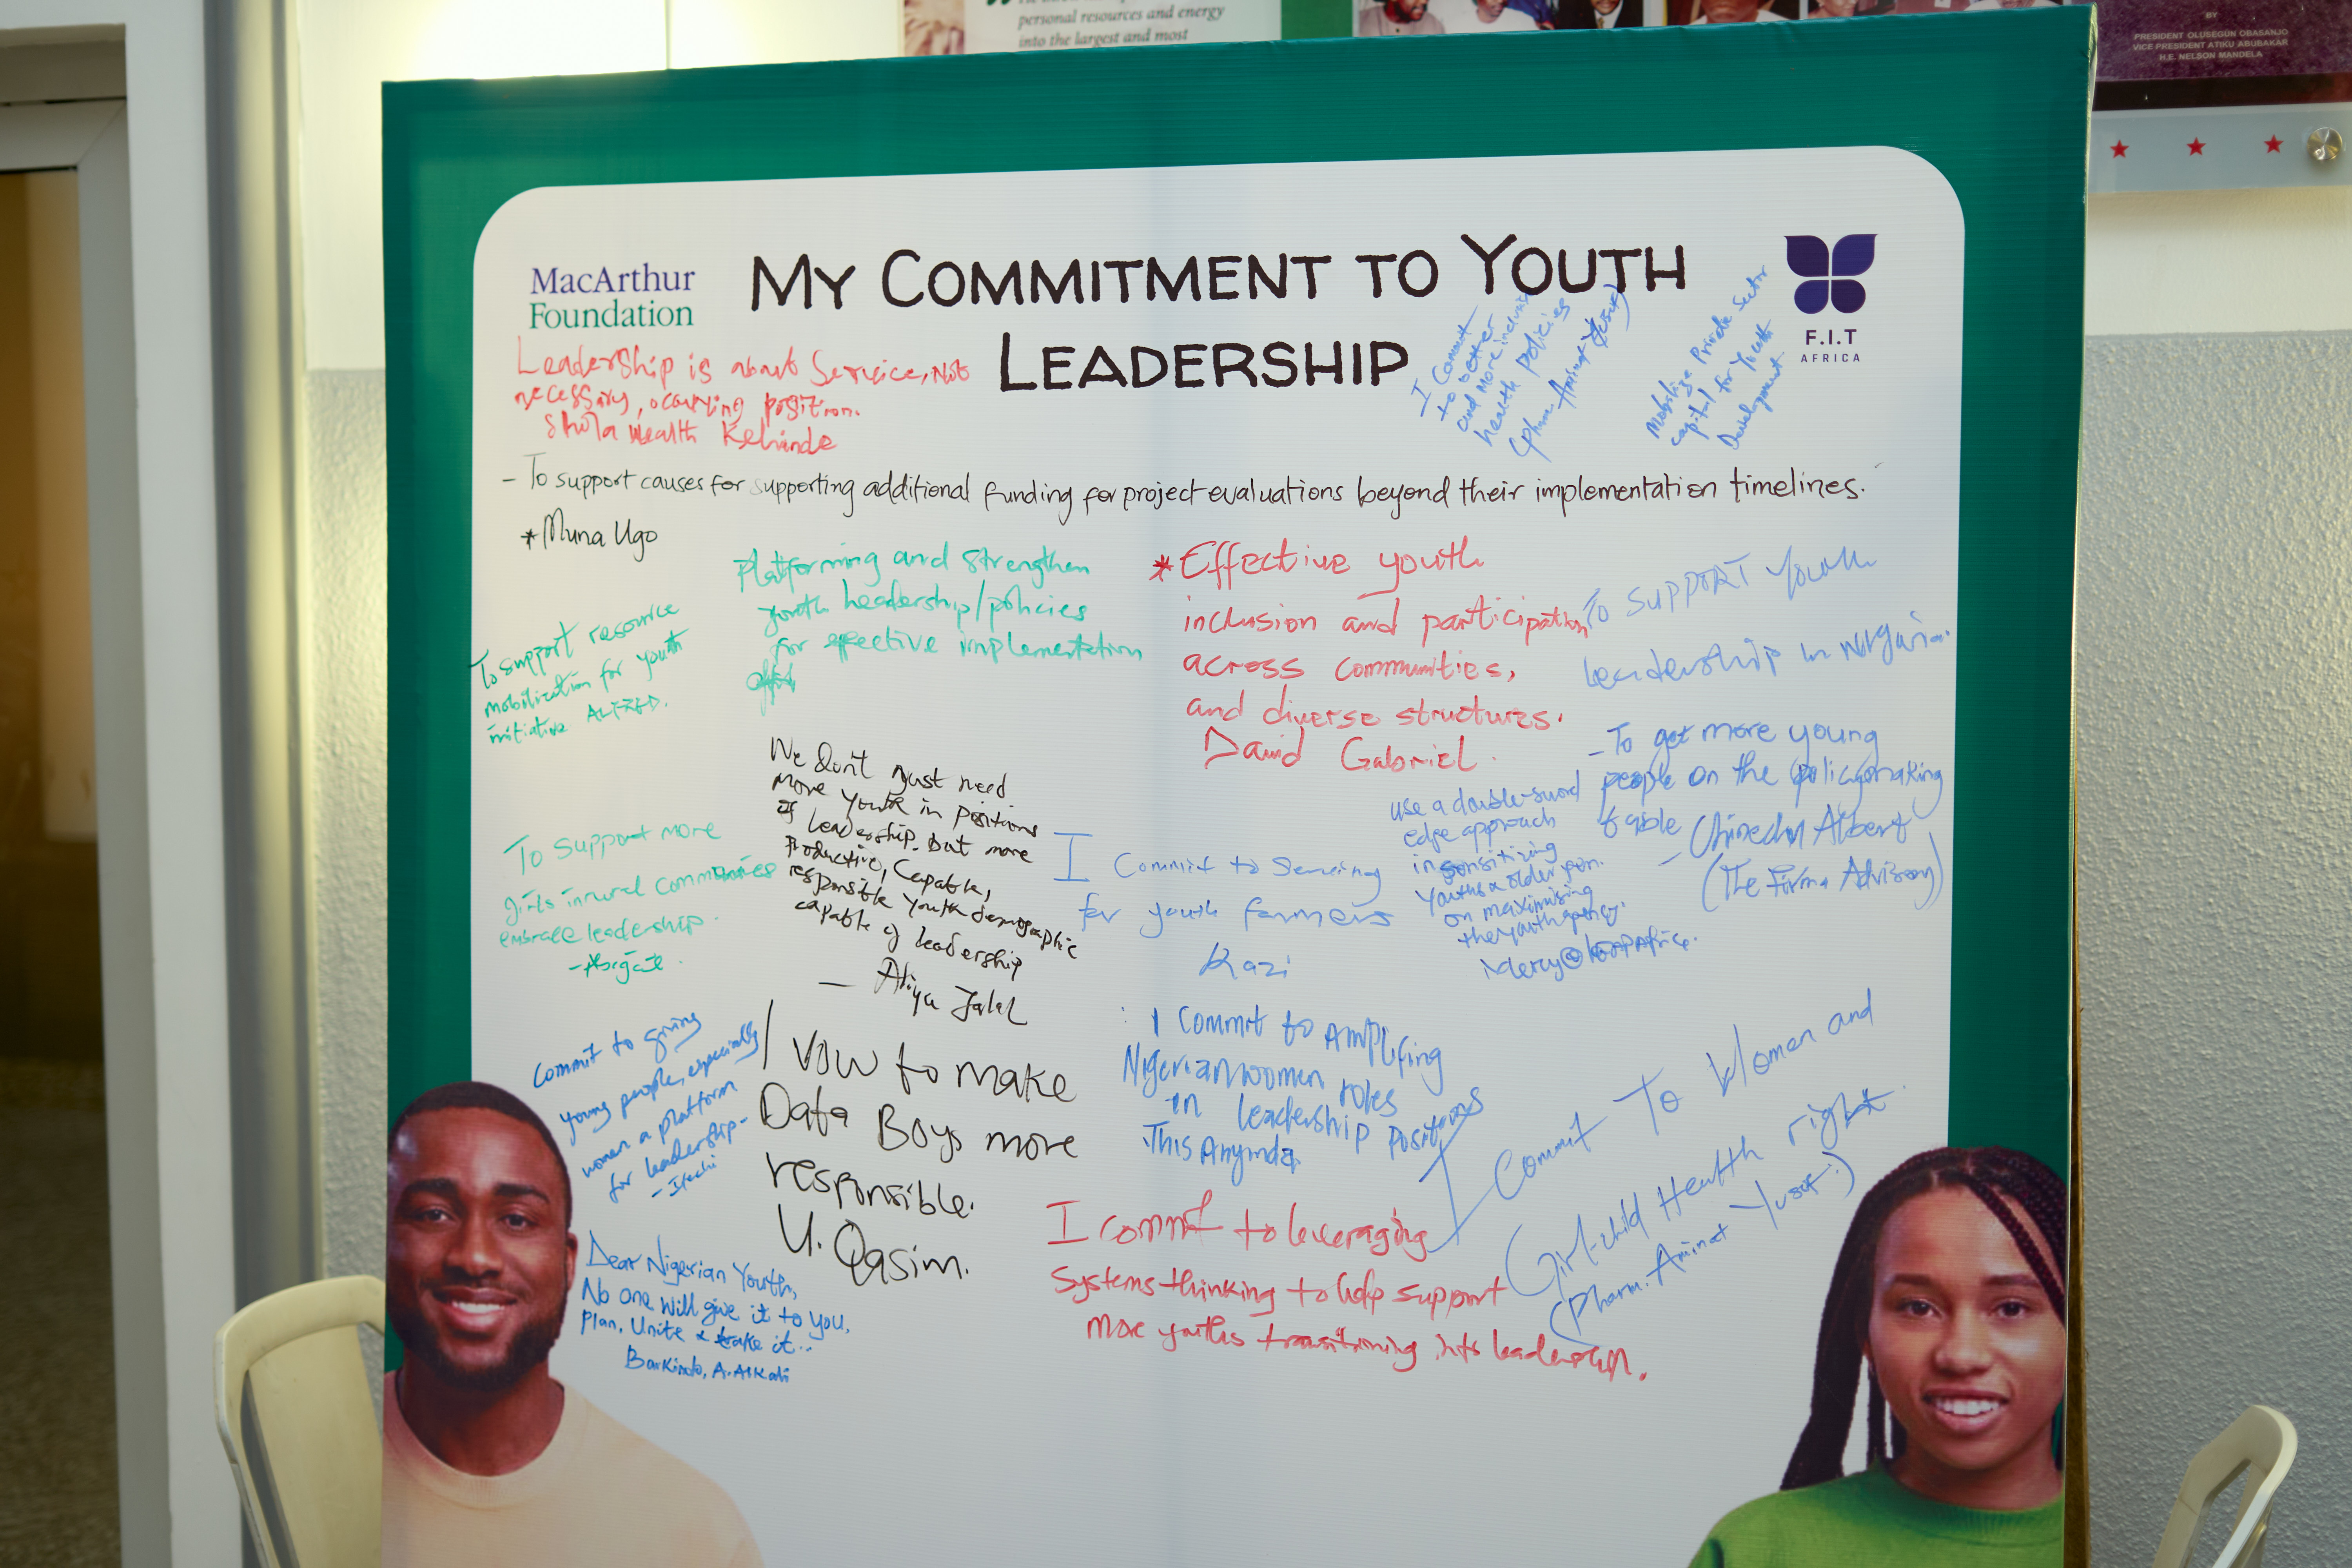 personal resources and energy
into the largest and most
BY
PRESIDENT OLUSEGUN OBASANJO
VICE PRESIDENT ATIKU ABUBAKAR
H.E. NELSON MANDELA
MacArthur
Foundation
MY COMMITMENT TO YOUTH
LEADERSHIP
F.I.T
AFRICA
Leadership is about Service, Not
necessary, ocuupying position.
Shola Wealth Kehinde
I Commit
to better
and More inclusive
health policies
(Pharm. Aminat Yusuf)
Mobilize Private Sector
capital for Youth
Development.
- To support causes for supporting additional funding for project evaluations beyond their implementation timelines.
* Muna Ugo
Platforming and strengthen
youth leadership/policies
for effective implementation
To support resource
mobilization for youth
initiative
* Effective youth
inclusion and participation
across communities,
and diverse structures.
David Gabriel.
To SUPPORT Youth
Leadership in Nigeria.
- To get more young
people on the policymaking
table
- Chinedu Albert
(The Firma Advisory)
use a double-sword
edge approach
in sensitizing
Youths & older gen.
on maximising
the youth
We don't just need
more youth in positions
of leadership. but more
Productive, Capable,
responsible youth demographic
capable of leadership
— Aliyu Jalal
To Support more
girls in rural communities
embrace leadership.
I Commit to Serving
for youth farmers
Kazi
Commit to giving
young people, especially
women a platform
for leadership -
I vow to make
Data Boys more
responsible.
U. Qasim.
I Commit to Amplifing
Nigerian women roles
in leadership positions
This Anyinda
I Commit To Women and
Girl-child Health right.
(Pharm. Aminat Yusuf.)
Dear Nigerian Youth,
No one will give it to you,
Plan, Unite & take it..
Barkindo, A. Alkali
I commit to leveraging
Systems thinking to help support
more youths transitioning into leadership.